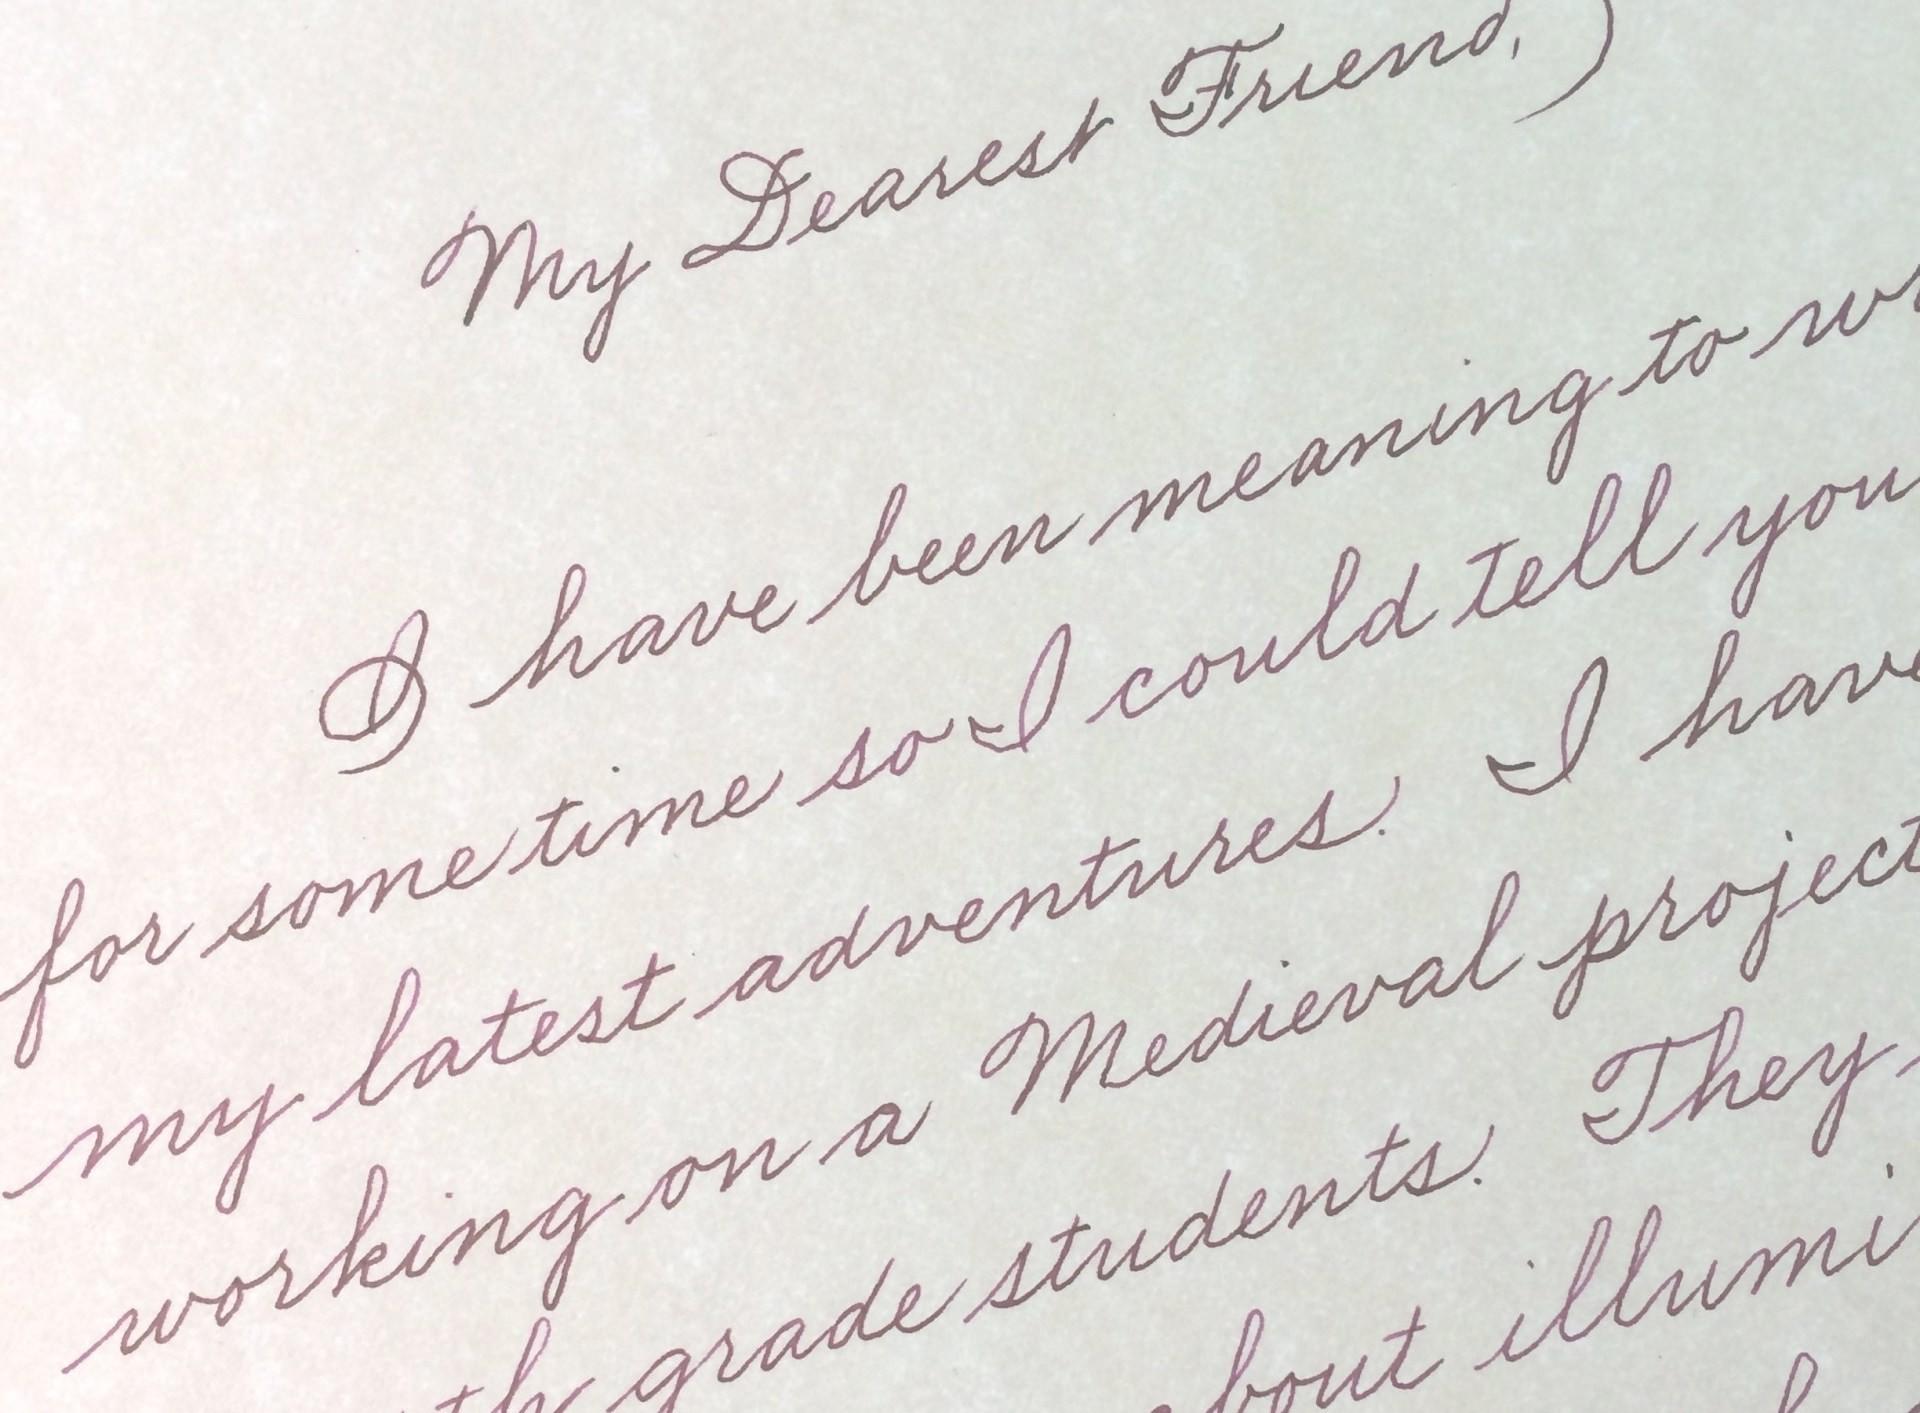 My Dearest Friend,
I have been meaning to
for some time so I could tell you
my latest adventures. I have
working on a Medieval project
grade students. They
about